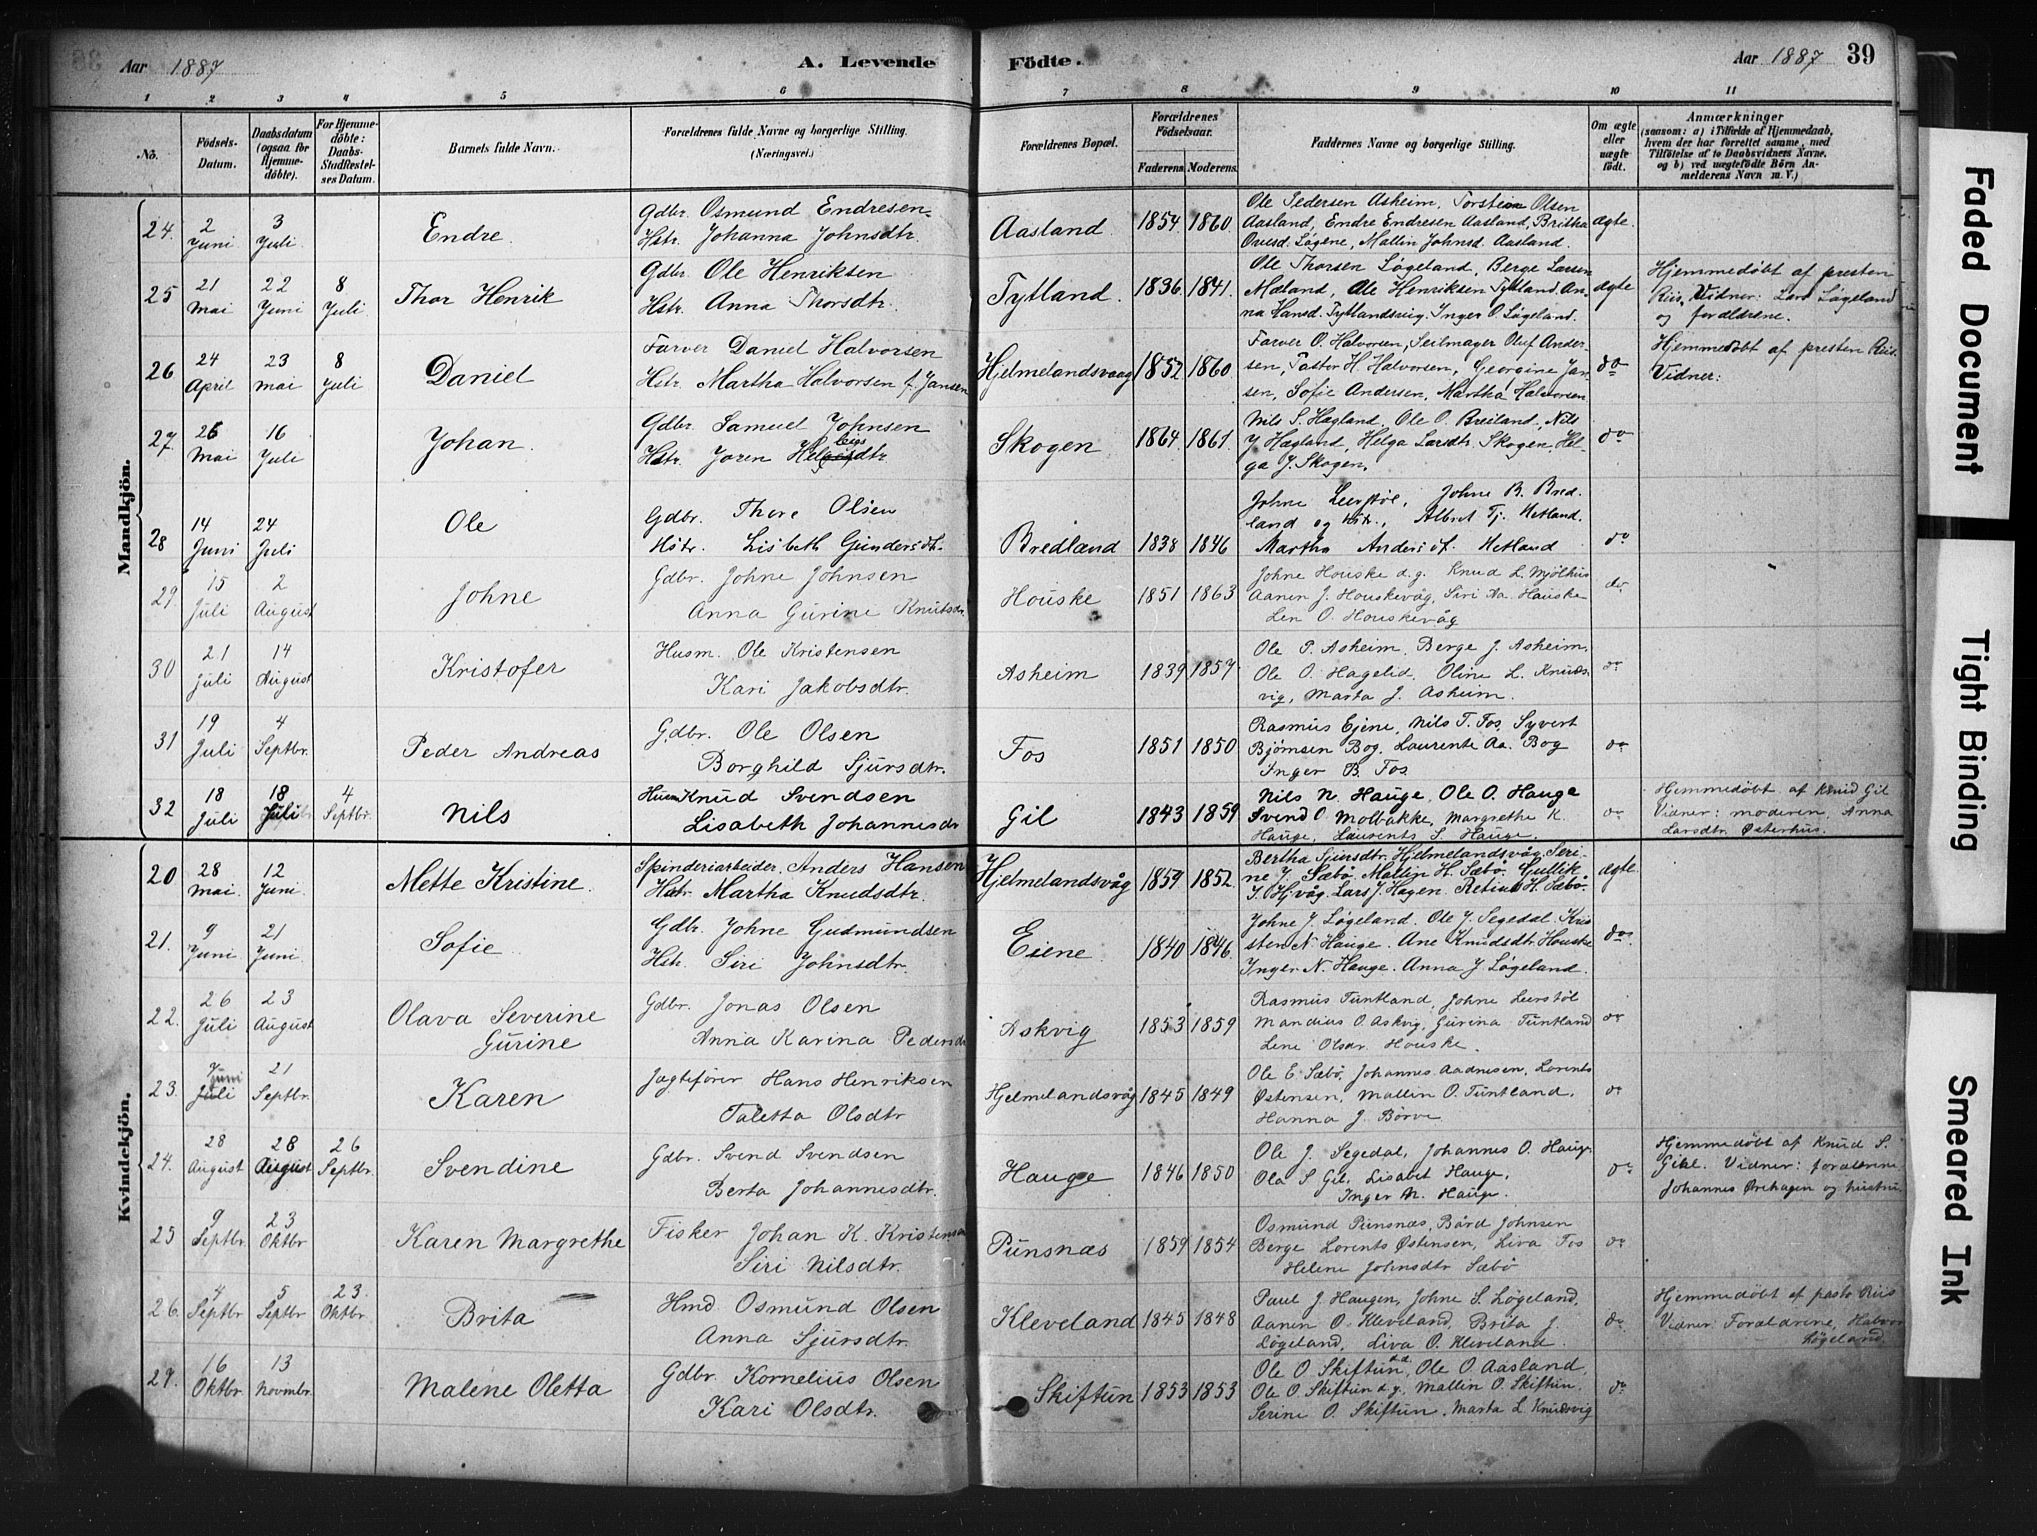 Aar 1887 A. Levende Födte. Aar 1887 39
1 2 3 4 5 6 7 8 9 10 11
No. Födsels-Datum. Daabsdatum (ogsaa for Hjemme-döbte). For Hjemme-döbte: Daabs-Stadfæstel-ses Datum. Barnets fulde Navn. Forældrenes fulde Navne og borgerlige Stilling. (Næringsvei.) Forældrenes Bopæl. Forældrenes Födselsaar. Faderens Moderens. Faddernes Navne og borgerlige Stilling. Om ægte eller uægte födt. Anmærkninger (saasom: a) i Tilfælde af Hjemmedaab, hvem der har forrettet samme, med Tilföielse af to Daabsvidners Navne, og b) ved uægtefödte Börn Anmelderens Navn m. V.)
Mandkjön.
24. 2 Juni 3 Juli Endre. Gdbr. Osmund Endresen Hstr. Johanna Johnsdtr. Aasland 1854 1860
Ole Pedersen Asheim, Torstein Olsen
Aasland, Endre Endresen Aasland, Britha
Løgene, Mallin Johnsd. Aasland. ægte.
25 21 Mai 22 Juni 8 Juli Thor Henrik Gdbr. Ole Henriksen Hstr. Anna Thorsdtr. Tytland. 1836 1841.
Ole Thorsen Løgeland, Berge Larsen
Mæland, Ole Henriksen Tytland An-
na Hansd. Tytlandsvig. Inger O. Løgeland. ægte
Hjemmedøbt af presten
Riis, Vidner: Lars Løgeland
og forældrene.
26 24 April 23 Mai 8 Juli Daniel Farver Daniel Halvorsen Hstr. Martha Halvorsen f. Jansen Hjelmelandsvaag 1852 1860
Farver O. Halvorsen, Seilmager Oluf Ander-
sen, Pastor H. Halvorsen, Georgine Jan-
sen, Sofie Andersen, Martha Halvorsen do
Hjemmedøbt af presten Riis.
Vidner:
27. 26 Mai 16 Juli Johan. Gdbr. Samuel Johnsen Hstr. Joren Skogen 1864. 1861.
Nils S. Hagland, Ole O. Breiland, Nils
J. Hagland, Helga Larsdtr. Skogen, Hel-
ga J. Skogen. do
28 14 Juni 24 Juli Ole Gdbr. Thore Olsen Hstr. Lisbeth Bredland 1838 1846
Johne Leerstøl, Johne B. Bred-
land og Albret Tj. Hetland.
Martha Hetland do
29 15 Juli 2 August Johne Gdbr. Johne Johnsen Anna Gurine Knutsdtr. Houske 1851 1863
Johne Houske d.y. Knud L. Mjølhus
Aanen J. Houskevåg, Siri Aa. Houske
Len O. Houskevåg do
30 21 Juli 14 August Kristofer Husm. Ole Kristensen Kari Jakobsdtr. Asheim 1839 1857
Ole P. Asheim, Berge J. Asheim,
Ole O. Hagelid, Oline L. Knuds-
vig, Marta J. Asheim. do
31 19 Juli 4 Septbr. Peder Andreas Gdbr. Ole Olsen Borghild Sjursdtr. Fos 1851 1850
Rasmus Ejene, Nils T. Fos, Syvert
Bjørnsen Bog. Laurente Aa. Bog
Inger B. Fos do
32 18 Juli 18 Juli 4 Septbr. Nils Husm Knud Svendsen Lisabeth Johannesdr Gil 1843 1859
Nils N. Hauge, Ole O. Hauge
Svend O. Molbakke, Margrethe K.
Hauge, Laurents S. Hauge. do
Hjemmedøbt af Knud Gil
Vidner: moderen, Anna
Larsdtr. Østerhus.
Kvindekjön.
20 28 Mai 12 Juni Mette Kristine. Spinderiarbeider. Anders Hansen Hstr. Martha Knudsdtr. Hjelmelandsvåg 1859 1852.
Bertha Sjursdtr. Hjelmelandsvåg. Seri-
ne J. Sæbø. Mallin H. Sæbø. Gullik
J. Hj.våg. Lars J. Hagen. H. Sæbø. ægte.
21. 9 Juni 21 Juni Sofie Gdbr. Johne Gudmundsen Hstr. Siri Johnsdtr. Eiene 1840 1846.
Johne J. Løgeland. Ole J. Segedal. Kris-
ten N. Hauge. Ane Knudsdtr. Houske
Inger N. Hauge. Anna J. Løgeland. do.
22. 26 Juli 23 August Olava Severine Gurine Gdbr. Jonas Olsen Anna Karina Pedersdr Askvig 1853 1859
Rasmus Tuntland, Johne Leerstøl
Mandius O. Askvig, Gurina Tuntland
Lene Olsdr. Houske. do
23. 7 Juni Juli 21 Septbr. Karen Jægtefører Hans Henriksen Taletta Olsdtr Hjelmelandsvåg 1845 1849
Ole E. Sæbø, Johannes Aadnesen, Lorents
Østensen, Mallin O. Tuntland,
Hanna J. Børve do
24. 28 August 28 August 26 Septbr. Svendine Gdbr. Svend Svendsen Berta Johannesdtr. Hauge 1846 1850
Ole J. Segedal, Johannes O. Hauge
Ola S Gil, Lisabet Hauge,
Inger N. Hauge. do
Hjemmedøbt af Knud S.
Gihl. Vidner: forældrene
Johannes Ørehagen og hustru.
25 9 Septbr. 23 Oktbr Karen Margrethe Fisker Johan K. Kristensen Siri Nilsdtr. Punsnæs 1859 1854
Osmund Punsnæs, Bård Johnsen
Berge Lorents Østensen, Liva Fos
Helene Johnsdtr Sæbø do
26. 4 Septbr 5 Septbr 23. Oktbr Brita Hmd Osmund Olsen Anna Sjursdtr. Kleveland 1845 1848
Paul J. Haugen, Johne S. Løgeland,
Aanen O. Kleveland, Brita J.
Løgeland, Liva O. Kleveland. do
Hjemmedøbt af pastor Riis
Vidner: Forældrene, Halvor
Løgeland
27. 16 Oktbr. 13 Novmbr. Malene Oletta Gdbr. Kornelius Olsen Kari Olsdtr. Skiftun 1853 1853
Ole O. Skiftun d.æ, Ole O. Aasland,
Ole O. Skiftun d.y. Mallin O. Skiftun.
Serine O. Skiftun. Marta L. Knudsvig do
Faded Document
Tight Binding
Smeared Ink